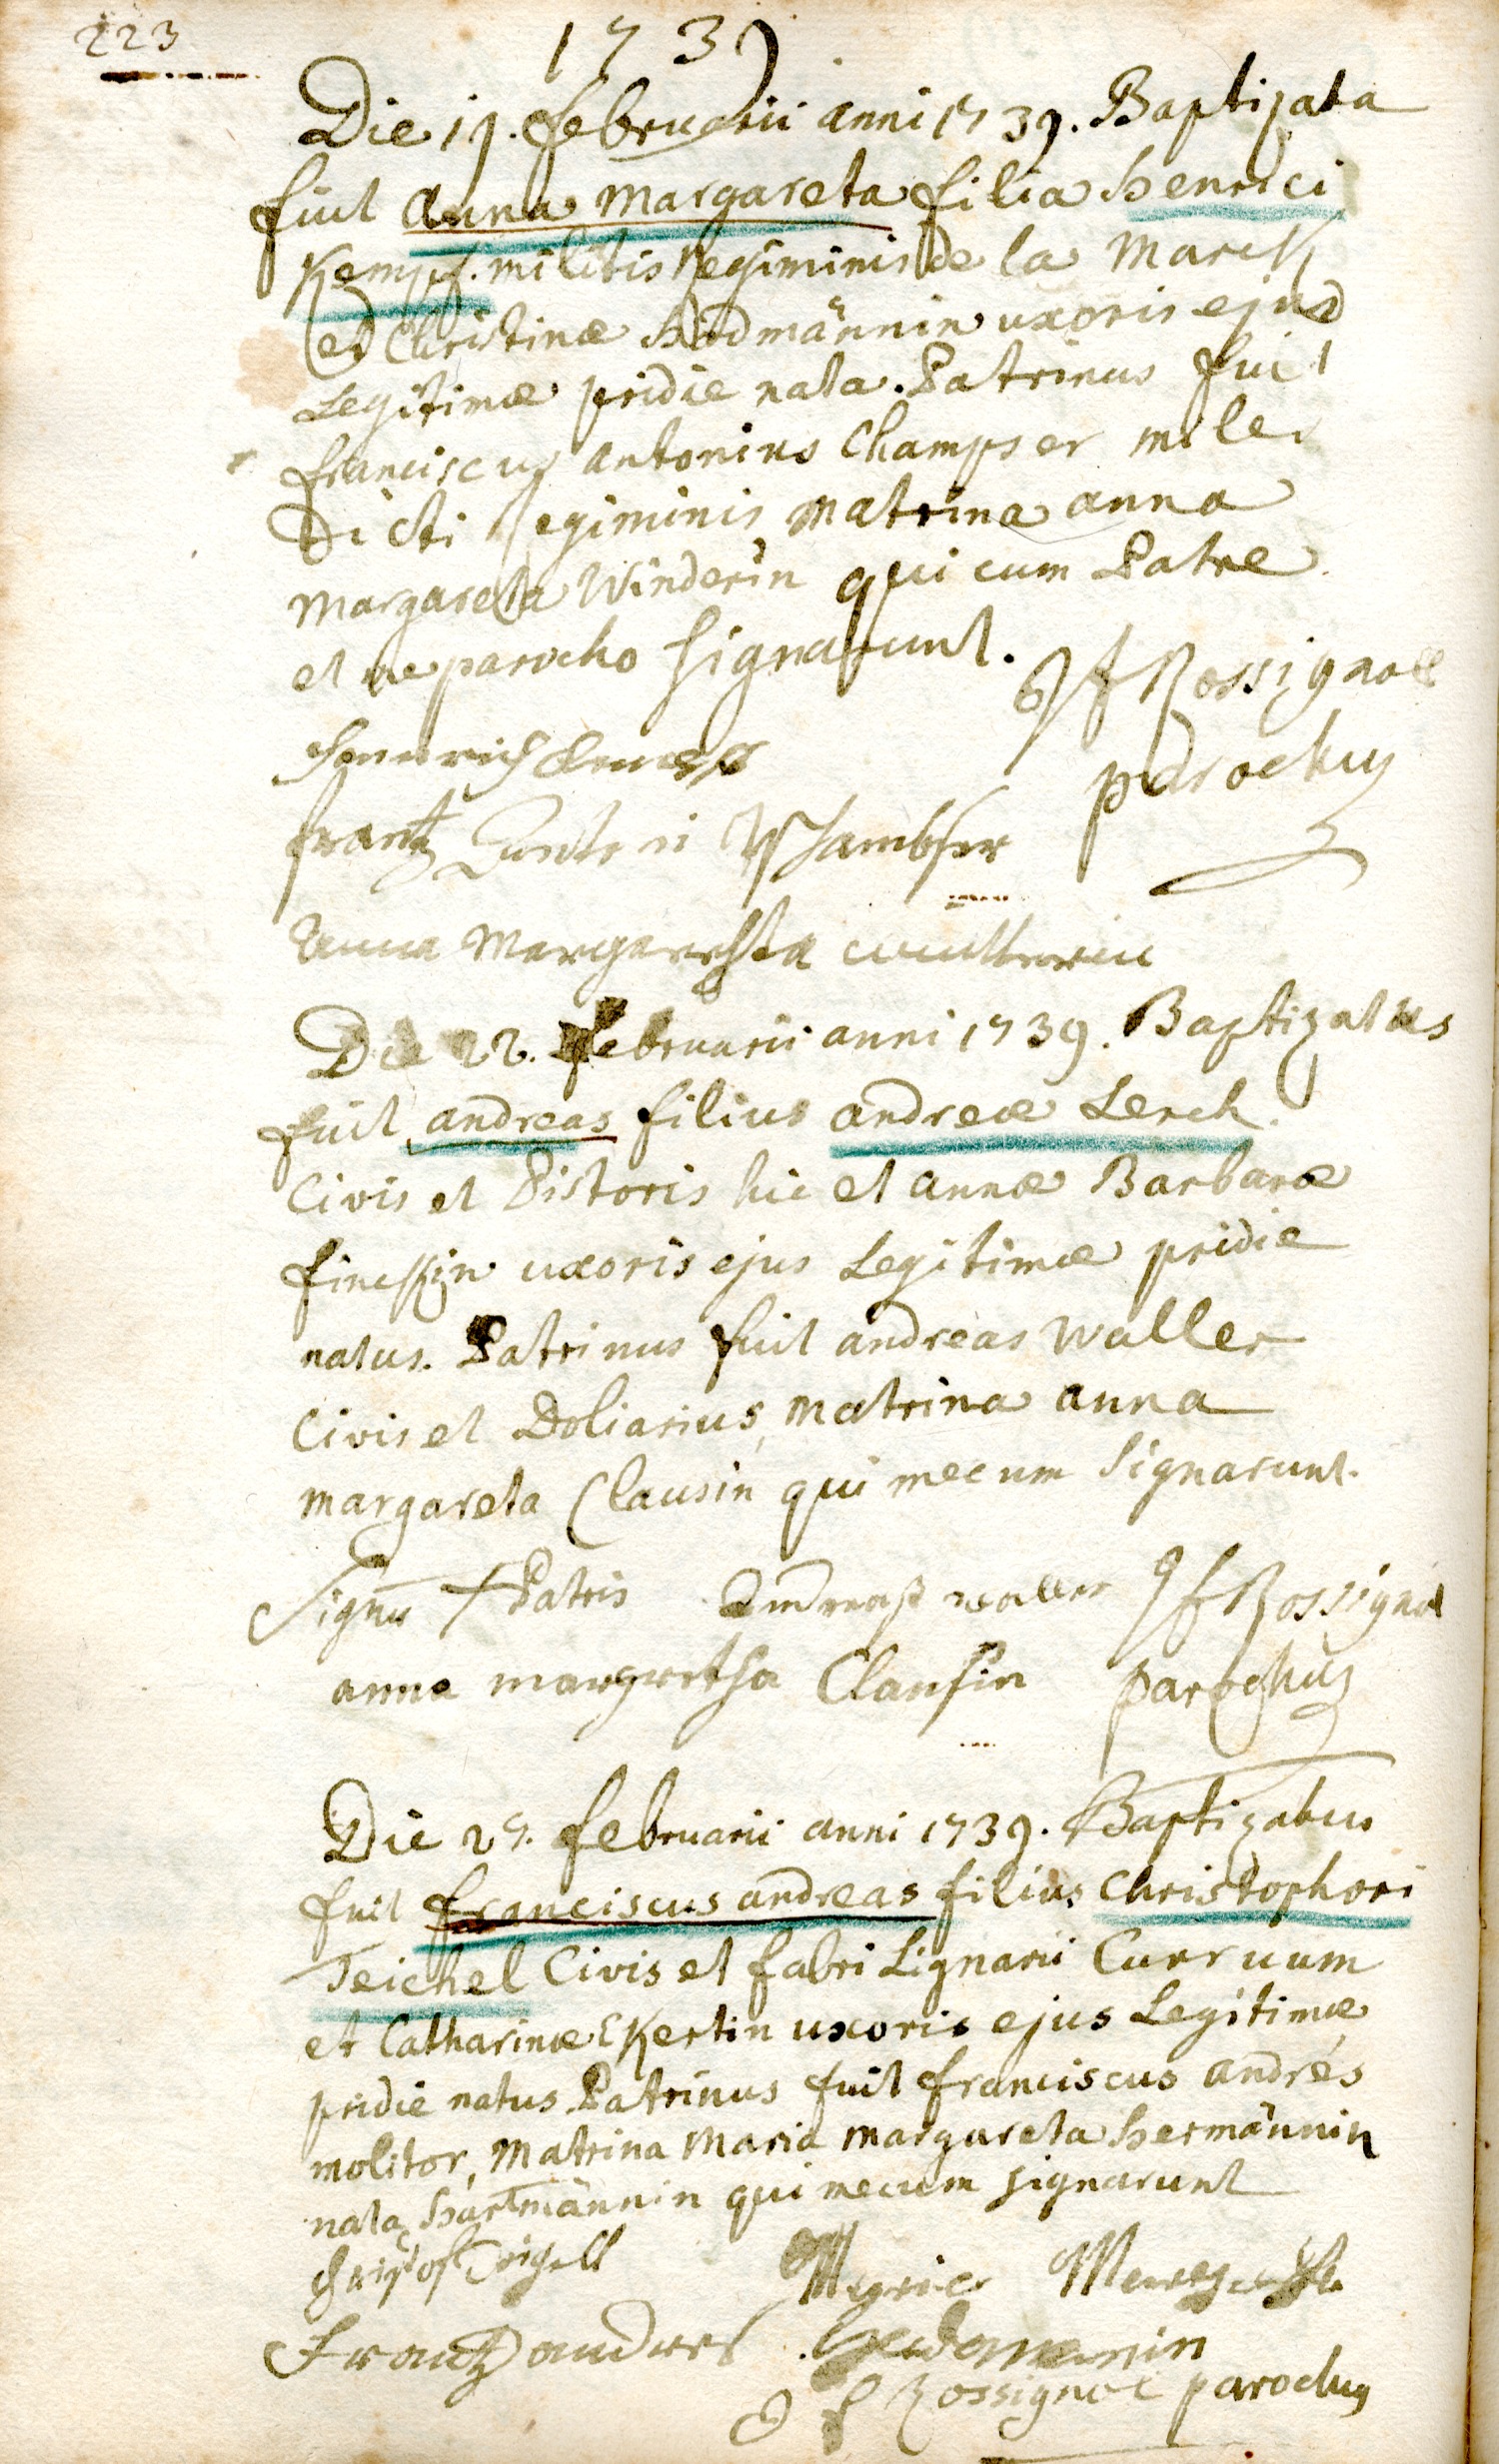 223
1739
Die 19. februarii anni 1739. Baptizata
fuit anna Margareta filia henrici
Kempf. militis Regiminis de la Marck
et Christinæ hodmännin uxoris ejus
Legitimæ pridie nata. Patrinus fuit
franciscus antonius Champser miles
Dicti Regiminis, Matrina anna
Margareta Winderin qui cum Patre
et me parocho signarunt.
JfRossignoll
parochus
frantz Ghambser
Anna Margarehta
Die 22. februarii anni 1739. Baptizatus
fuit andreas filius andreæ Lerch.
Civis et Pistoris hic et annæ Barbaræ
finckin uxoris ejus Legitimæ pridie
natus. Patrinus fuit andreas Waller
Civis et Doliarius, Matrina anna
margareta Clausin qui mecum signarunt.
Signū + Patris Andreaß waller JfRossignol
anna margretha Clausin parochus
Die 27. februarii anni 1739. Baptizatus
fuit franciscus andreas filius Christophori
Teichel Civis et fabri Lignarii Curruum
et Catharinæ Ekertin uxoris ejus Legitimæ
pridie natus. Patrinus fuit franciscus andrés
molitor, Matrina Maria margareta hermännin
nata hartmännin qui mecum signarunt
christof Teigell
Frantz andres
J f Rossignol parochus